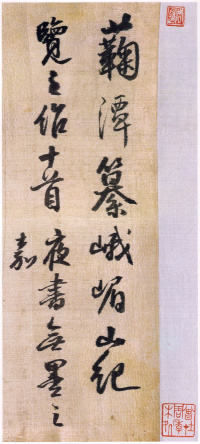 蘜潭纂峨嵋山紀
覽之作十首夜書無墨之
嘉